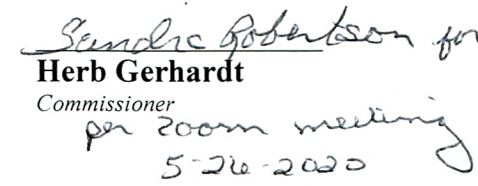 Sandra Robertson for
Herb Gerhardt
Commissioner
per zoom meeting
5-26-2020